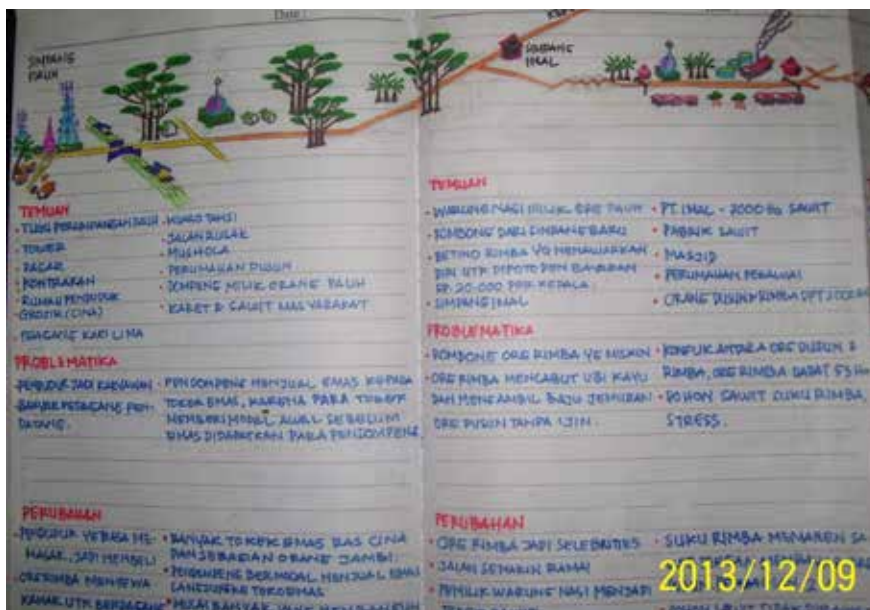 SIMPANG
PAUH
TEMUAN
• TUGU PERSIMPANGAN PAUH
• TOWER
• PASAR
• KONTRAKAN
• RUMAH PENDUDUK
GROSIR (CINA)
• PEDAGANG KAKI LIMA
• MUARO TANSI
• JALAN RUSAK
• MUSHOLA
• PERUMAHAN DUSUN
• DOMPENG MILIK ORANG PAUH
• KARET & SAWIT MASYARAKAT
PROBLEMATIKA
• PENDUDUK JADI KARYAWAN
• BANYAK PEDAGANG PEN-
DATANG.
• PENDOMPENG MENJUAL EMAS KEPADA
TOKEH EMAS, KARENA PARA TOKEH
MEMBERI MODAL AWAL SEBELUM
EMAS DIDAPATKAN PARA PENDOMPENG
PERUBAHAN
• PENDUDUK YG BIASA ME-
MASAK, JADI MEMBELI
• ORG RIMBA MENYEWA
• BANYAK TOKEH EMAS RAS CINA
DAN SEBAGIAN ORANG JAMBI.
• PENDOMPENG BERMODAL MENJUAL EMAS
LANGSUNG KE TOKO EMAS
SIMPANG
IMAL
TEMUAN
• WARUNG NASI MILIK ORG PAUH
• ROMBONG DARI SIMPANG BARU
• BETINO RIMBA YG MENAWARKAN
DIRI UTK DIPOTO DGN BAYARAN
RP. 20.000 PER KEPALA
• SIMPANG IMAL
• PT. IMAL - 2000 Ha SAWIT
• PABRIK SAWIT
• MASJID
• PERUMAHAN PEGAWAI
• ORANG DUSUN RIMBA DPT
PROBLEMATIKA
• ROMBONG ORG RIMBA YG MISKIN
• ORG RIMBA MENCABUT UBI KAYU
DAN MENGAMBIL BAJU JEMURAN
ORG DUSUN TANPA IJIN.
• KONFLIK ANTARA ORG DUSUN &
RIMBA, ORG RIMBA DAPAT 53 Ha
• POHON SAWIT SUKU RIMBA,
STRESS.
PERUBAHAN
• ORG RIMBA JADI SELEBRITIS
• JALAN SEMAKIN RAMAI
• PEMILIK WARUNG NASI MENJADI
• SUKU RIMBA MENAREN SA
2013/12/09